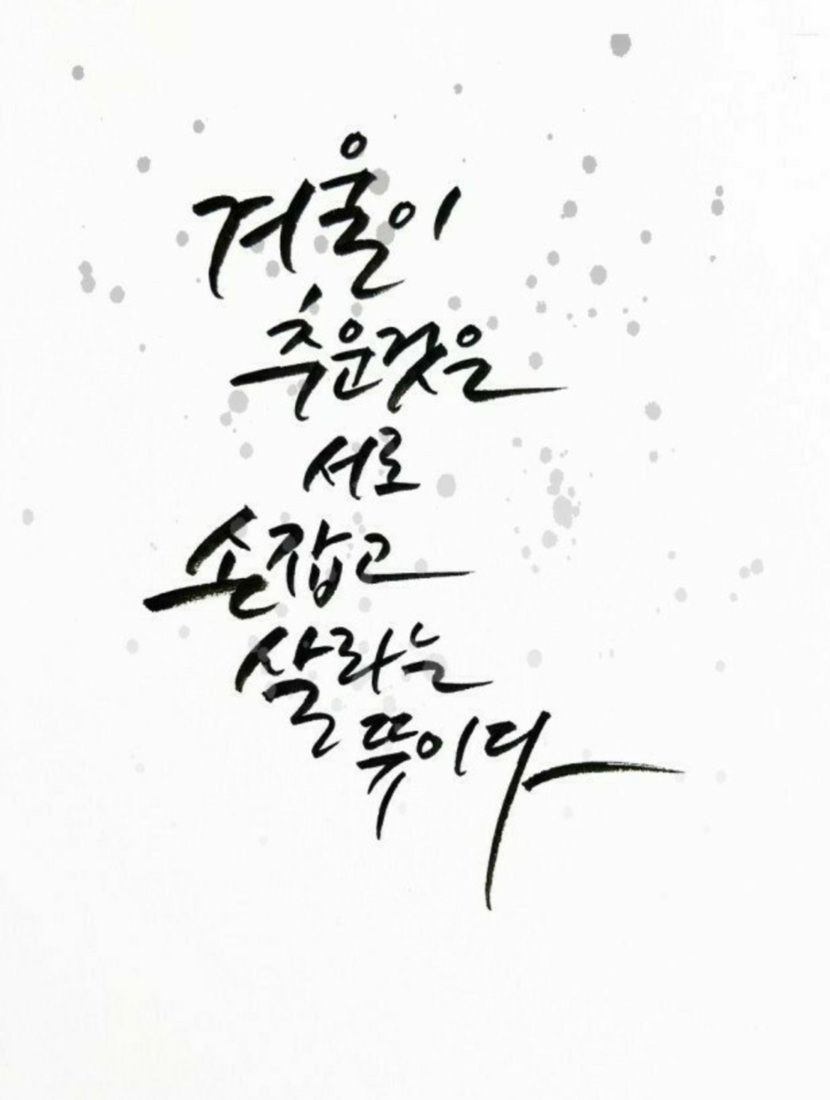 겨울이
추운것은
서로
손잡고
살라는
뜻이다